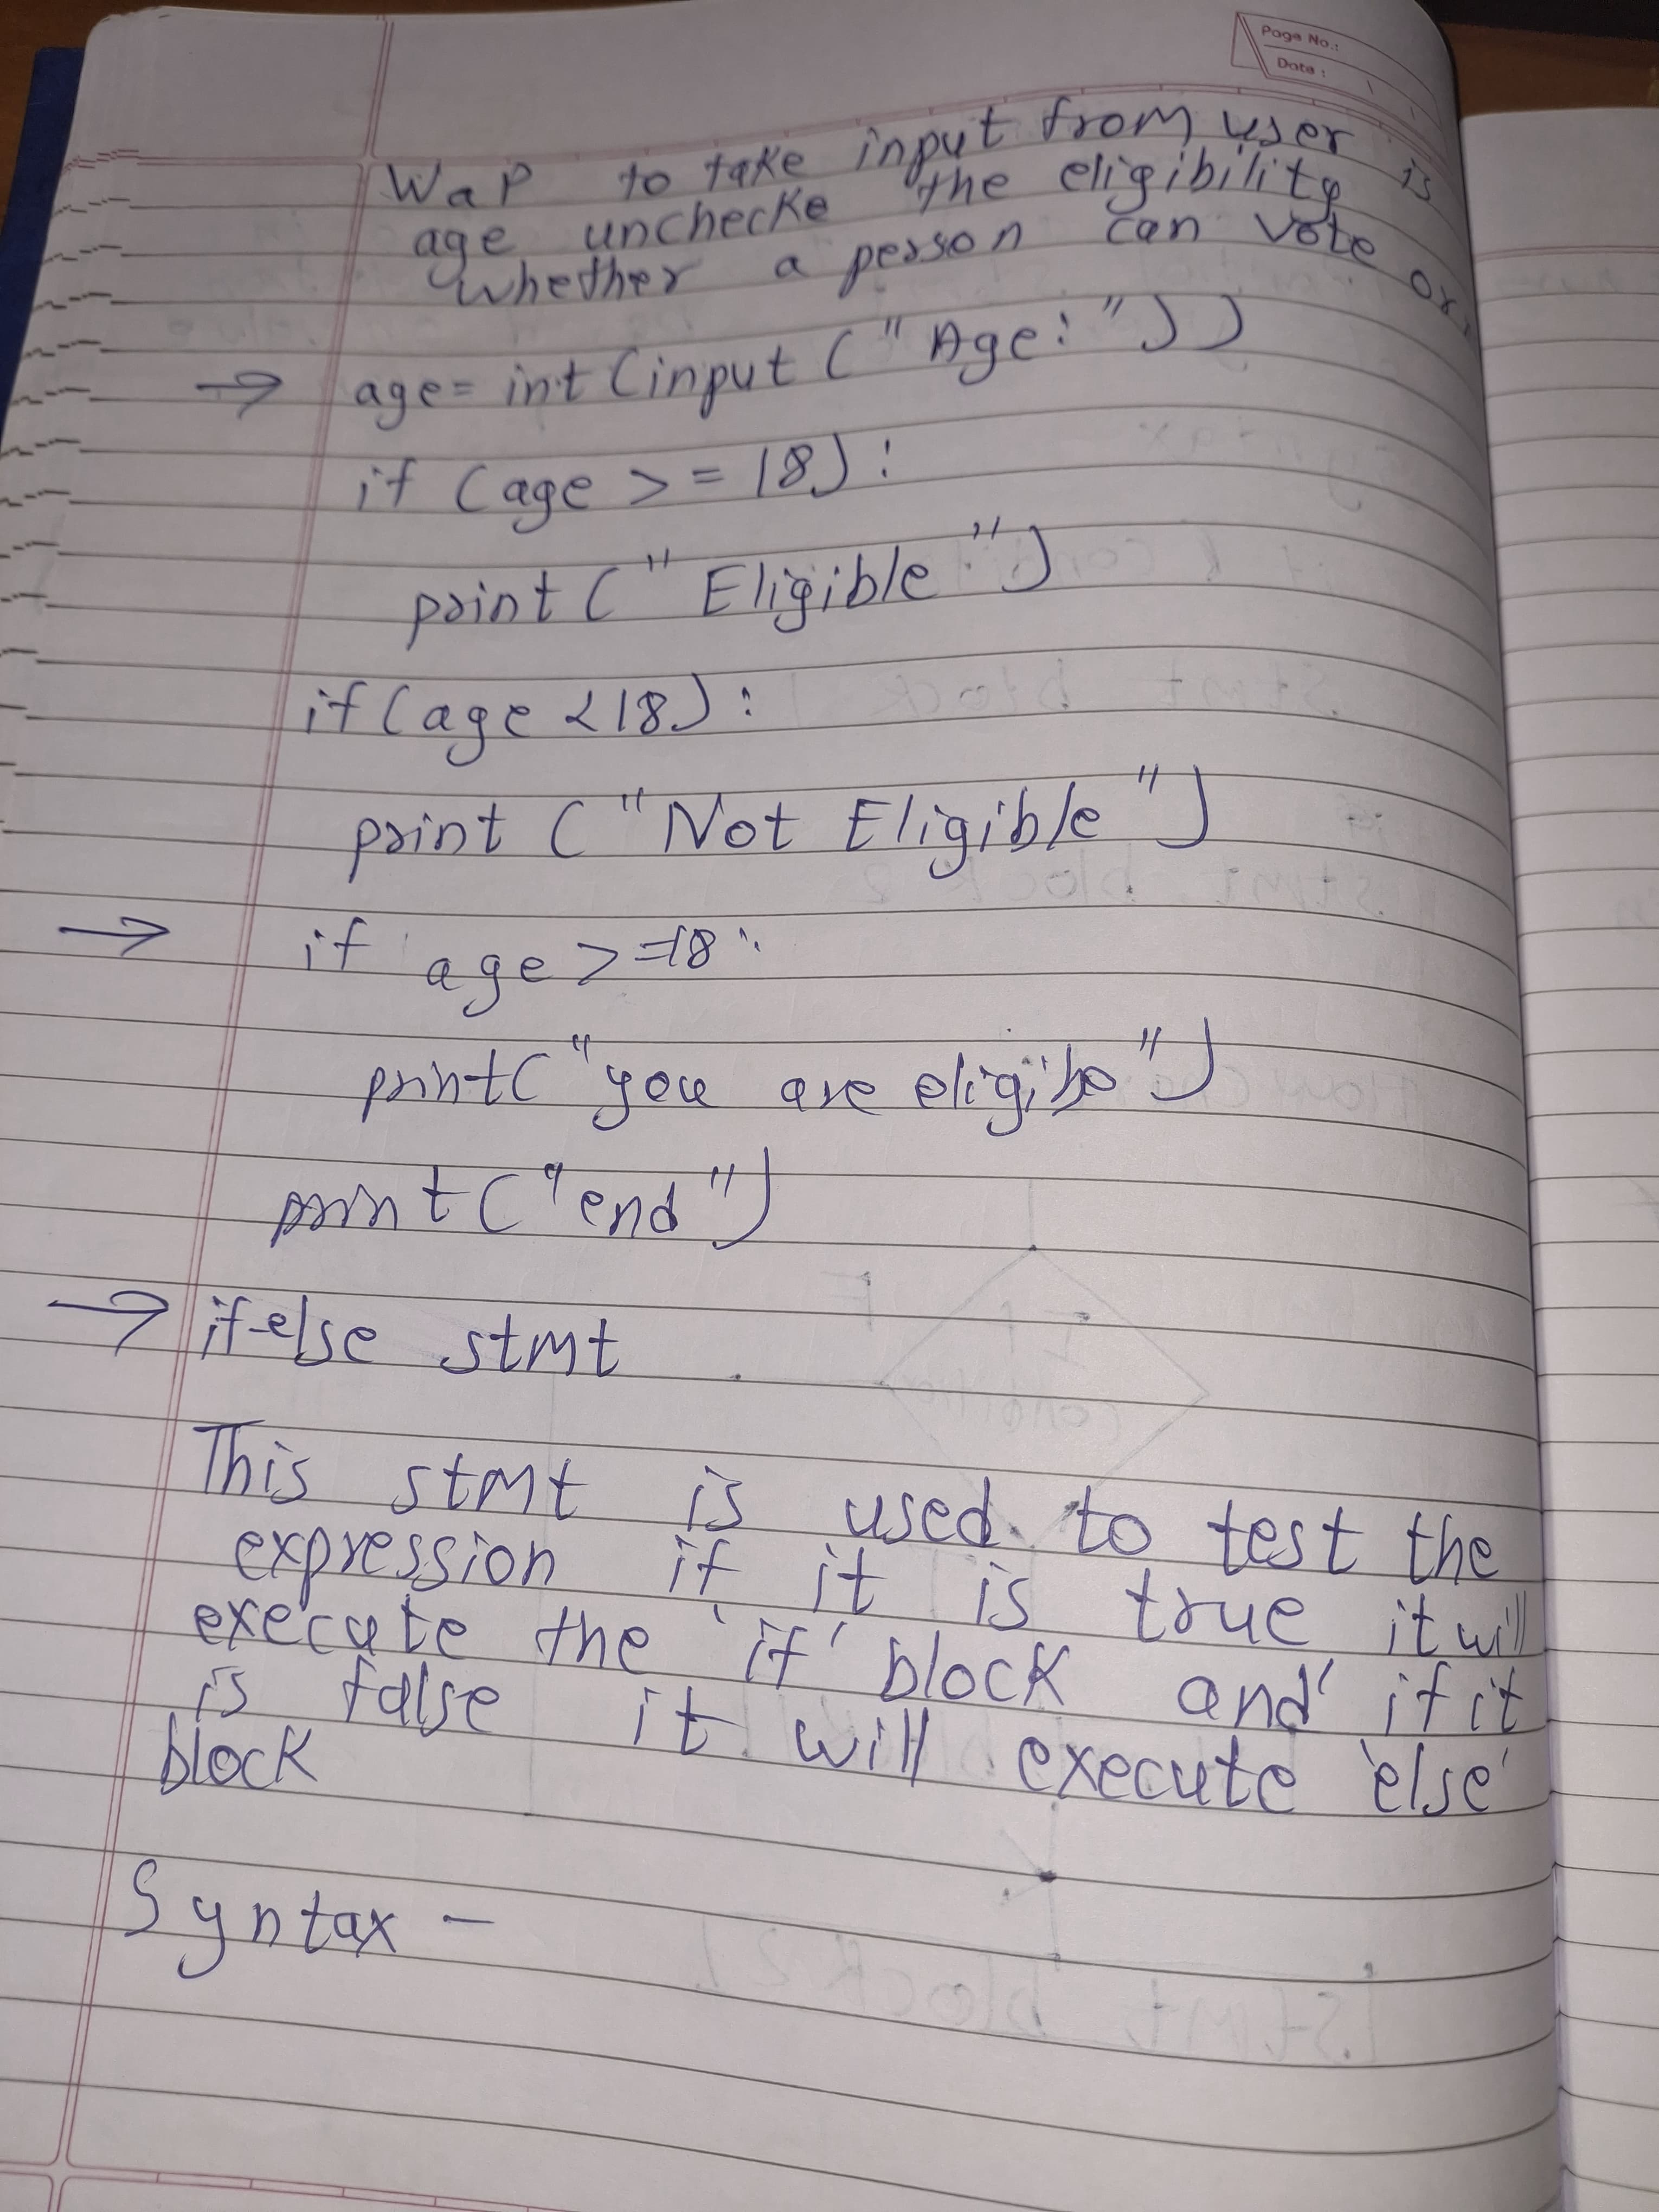 Page No.:
Date :
WaP to take input from user is
age unchecke the eligibility
whether a person can vote or
age= int (input ("Age:"))
if (age >= 18):
print ("Eligible")
if (age <18):
print ("Not Eligible")
if age >=18:
print("you are eligibe")
print("end")
if-else stmt
This stmt is used to test the
expression if it is true it will
execute the 'if' block and if it
is false it will execute 'else'
block
Syntax -